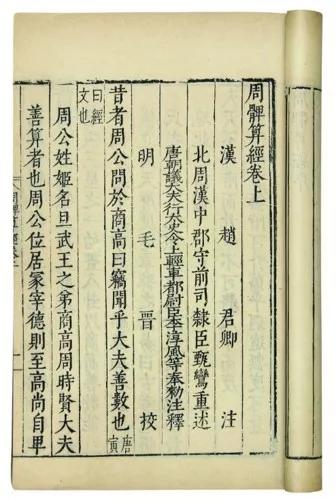 周髀算經卷上
漢 趙 君卿 注
北周漢中郡守前司隸臣甄鸞重述
唐朝議大夫行太史令上輕車都尉臣李淳風等奉勅注釋
明 毛 晉 挍
昔者周公問於商高曰竊聞乎大夫善數也唐寅
曰經文也
周公姓姬名旦武王之弟商高周時賢大夫
善算者也周公位居冢宰德則至高尚自卑